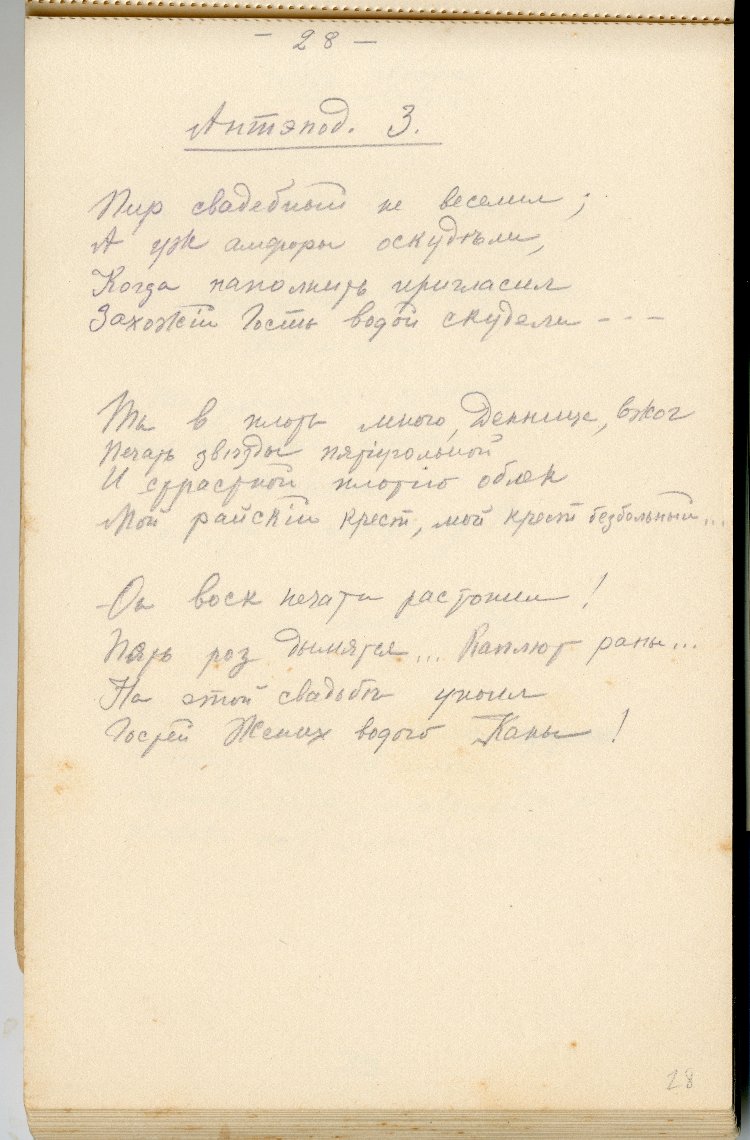 – 28 –
Антэпод. 3.
Пир свадебный не веселил;
А уж амфоры оскудѣли,
Когда наполнить пригласил
Захожій Гость водой скудели – – –
Ты в плоть мою, Денница, вжог
Печать звѣзды пятіугольной
И страстной плотію облек
Мой райскій крест, мой крест безбольный...
Он воск печати растопил!
Пять роз дымятся... Каплют раны...
На этой свадьбѣ упоил
Гостей Жених водою Каны!
28